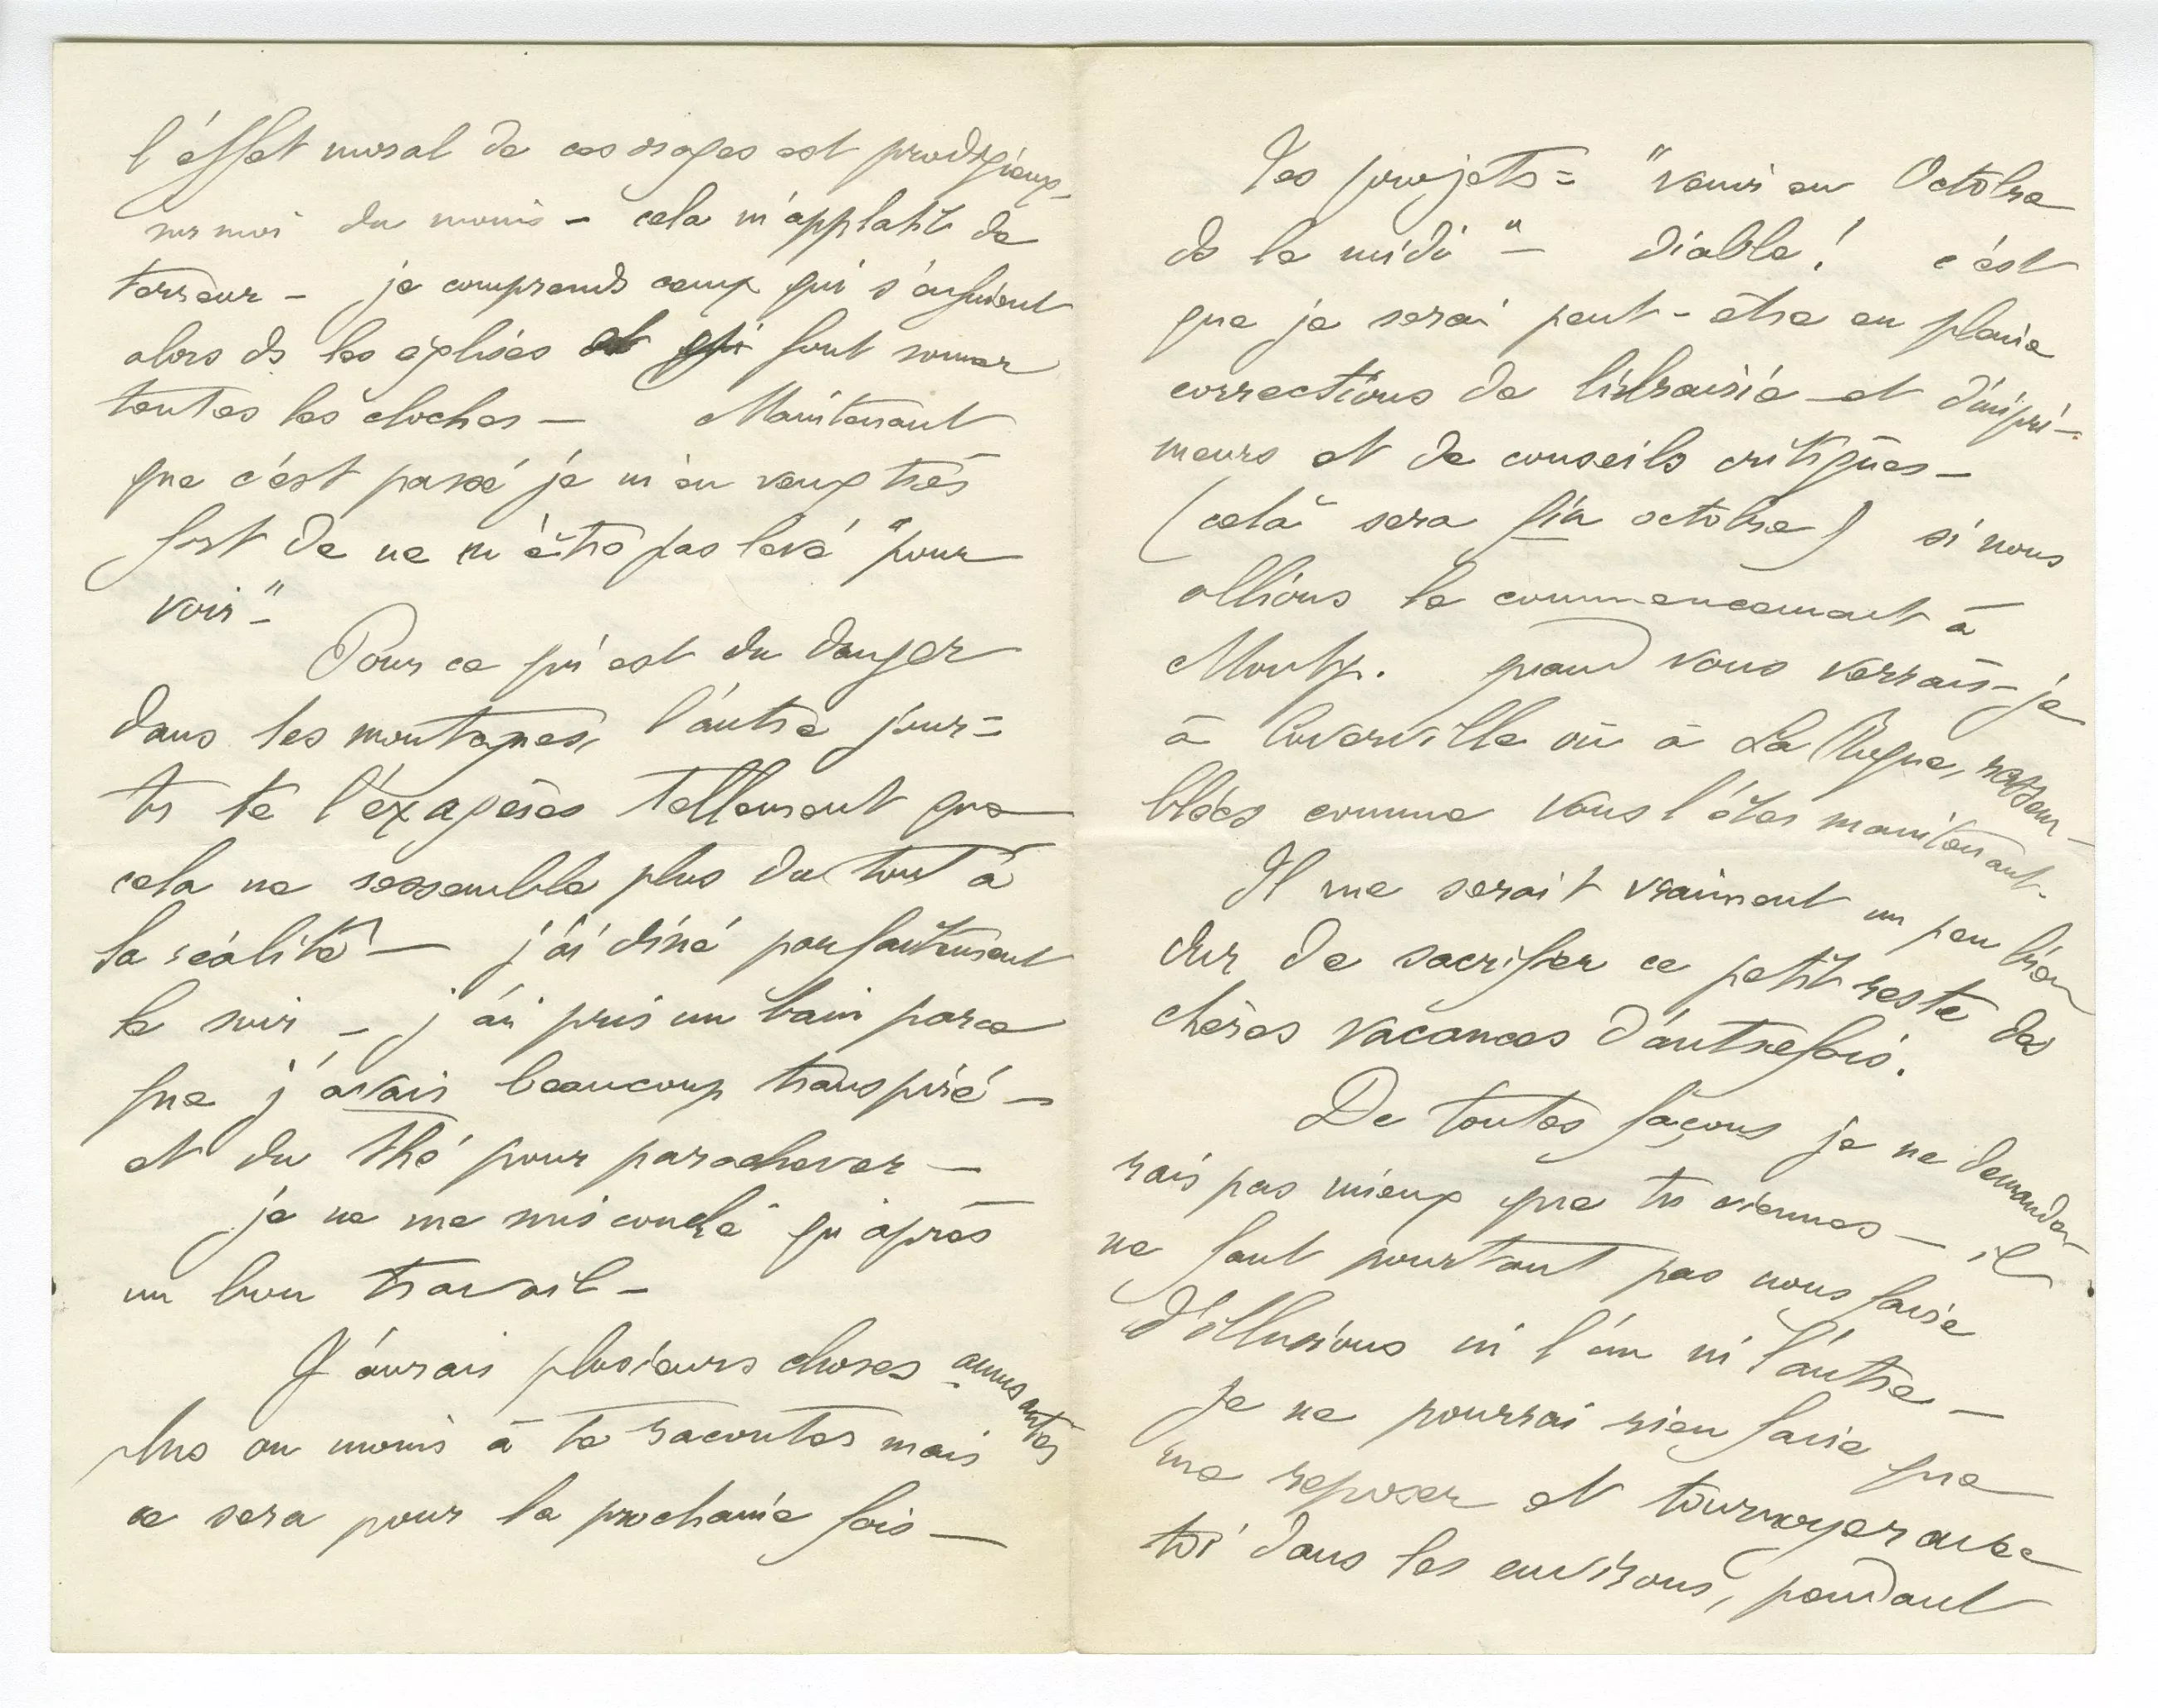 l'éffet moral de ces orages est prodigieux-
sur moi du moins – cela m'applatit de
terreur – je comprends ceux qui s'enfuient
alors ds les églises et qui font sonner
toutes les cloches – Maintenant
que c'est passé je m'en veux très
fort de ne m'être pas levé "pour
voir" –
Pour ce qui est du danger
dans les montagnes, l'autre jour –
tu te l'éxagères tellement que
cela ne ressemble plus du tout à
la réalité – j'ai dîné parfaitement
le soir – j'ai pris un bain parce
que j'avais beaucoup transpiré –
et du thé pour parachever –
je ne me suis couché qu'après
un bon travail –
J'aurais plusieurs choses amusantes
plus ou moins à te raconter mais
ce sera pour la prochaine fois –
Tes projets = "venir en Octobre
ds le midi" – diable ! c'est
que je serai peut-être en pleine
corrections de librairie et d'impri-
meurs et de conseils critiques –
(cela sera fin octobre) si nous
allions le commencement à
Montp. quand vous verrais-je
à Cuverville où à La Roque, rassem-
blées comme vous l'êtes maintenant –
Il me serait vraiment un peu bien
dur de sacrifier ce petit reste des
chères vacances d'autrefois.
De toutes façons je ne demande-
rais pas mieux que tu viennes – il
ne faut pourtant pas nous faire
d'illusions ni l'un ni l'autre –
Je ne pourrai rien faire que
me reposer et tournoyer avec
toi dans les environs, pendant